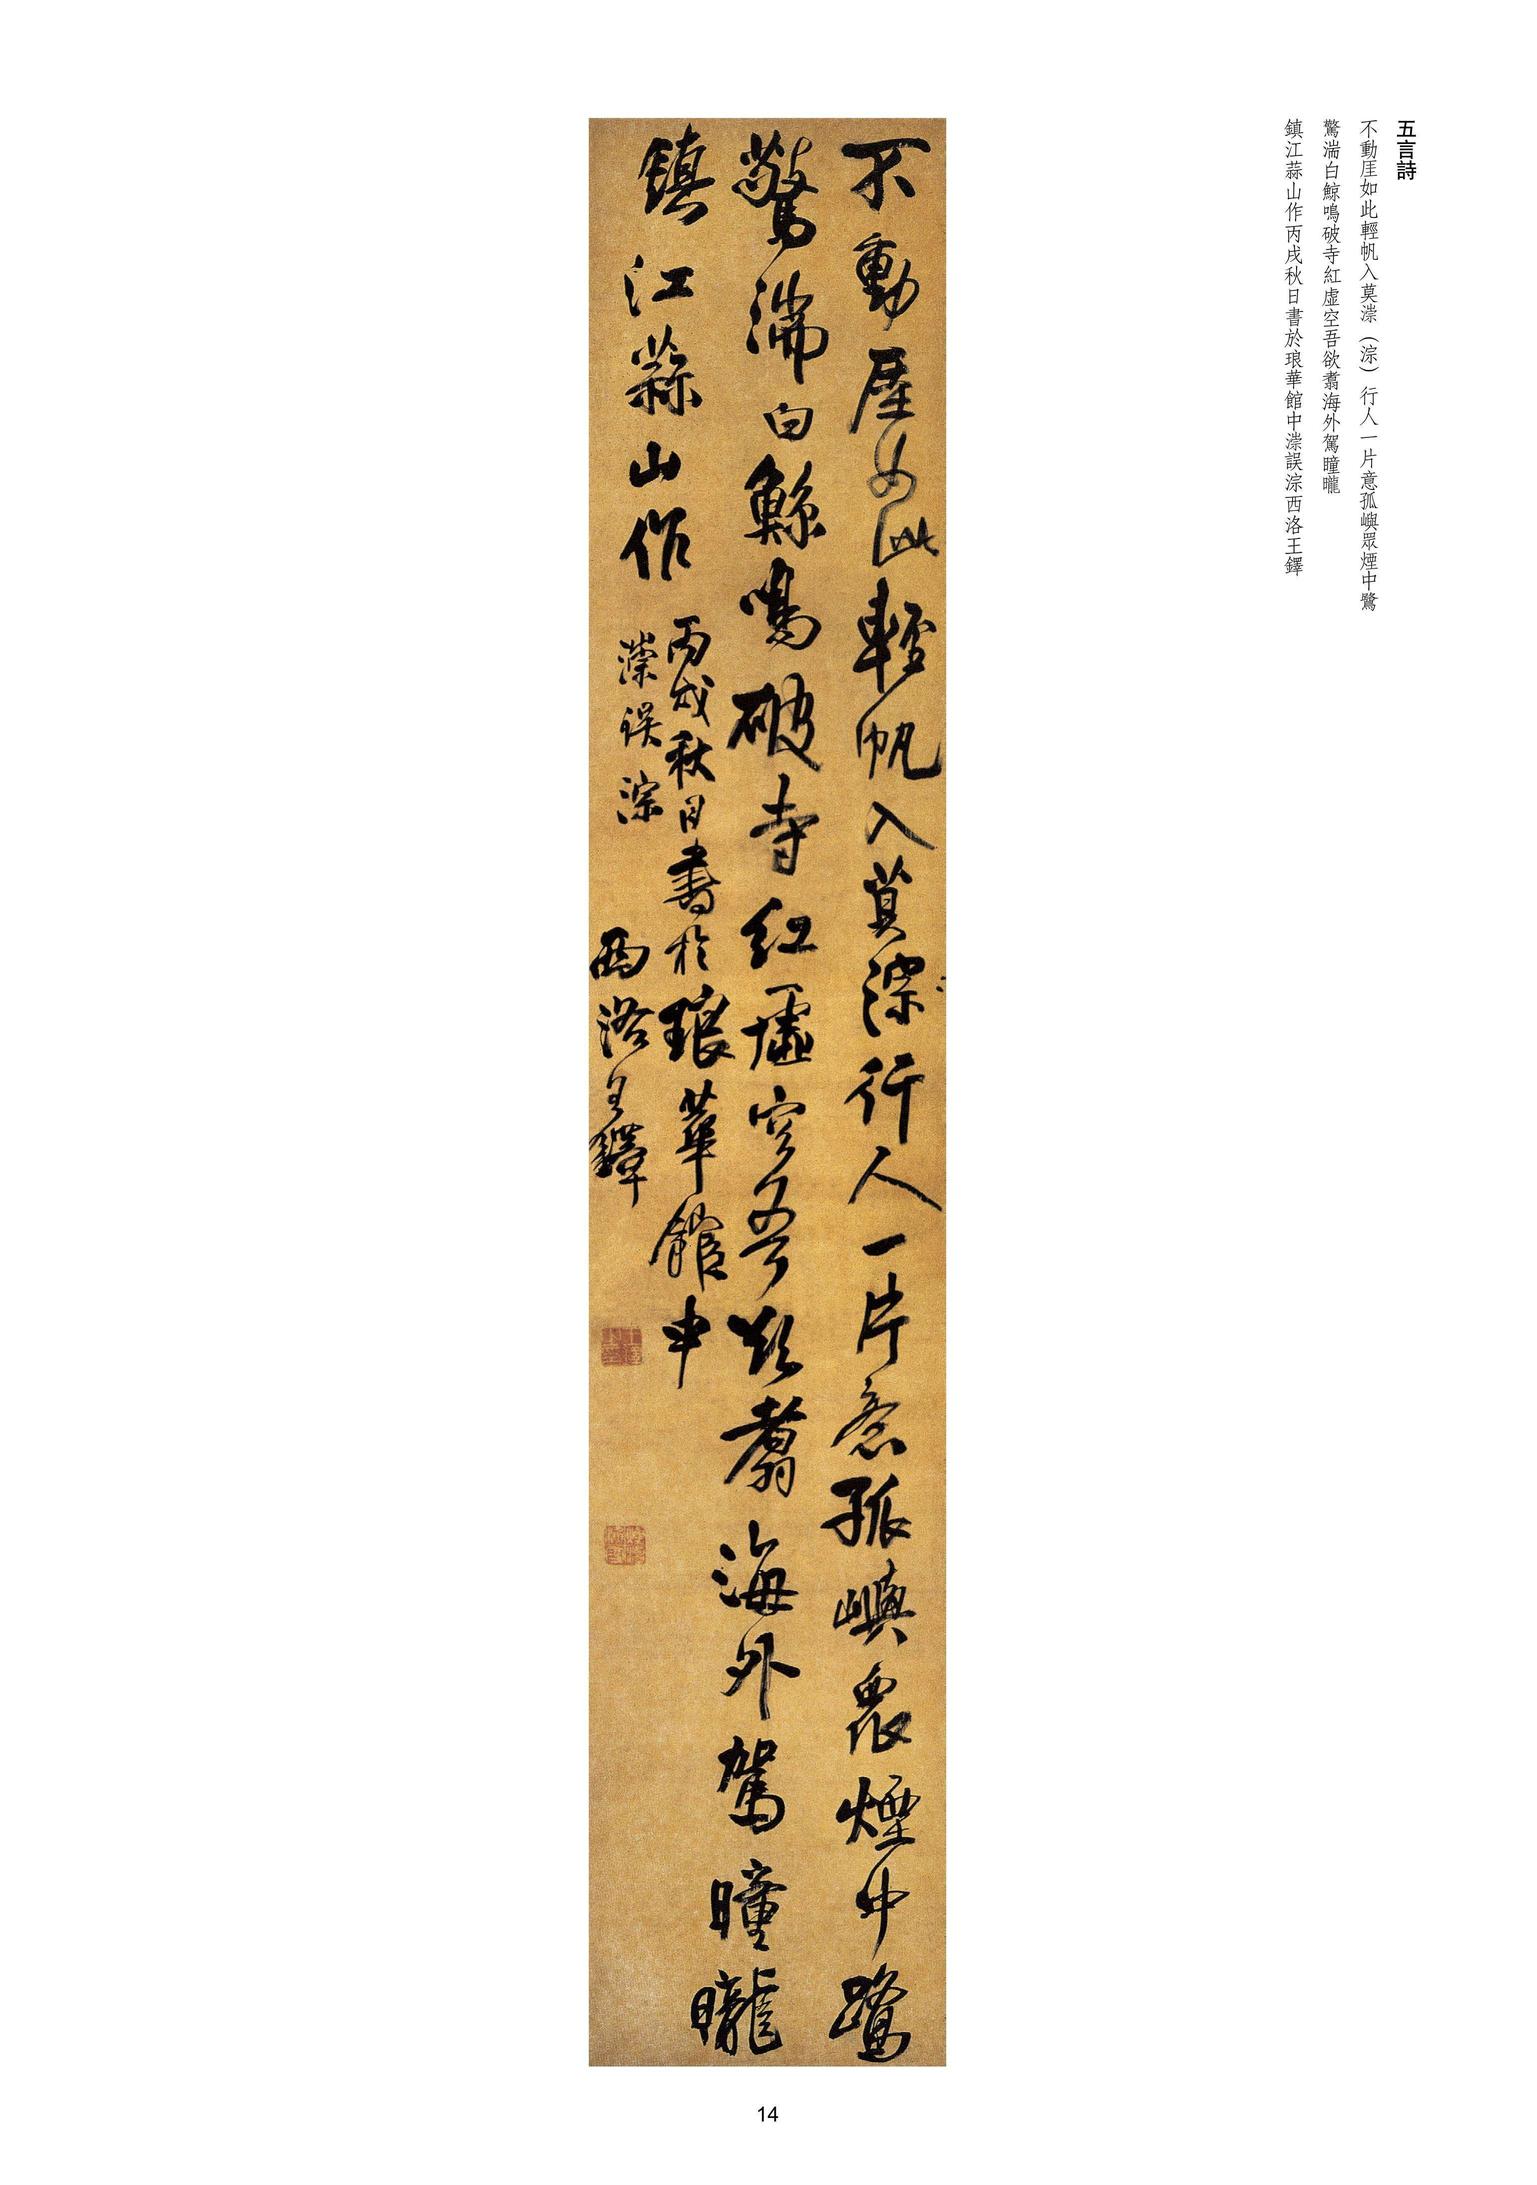 五言詩
不動厓如此輕帆入莫漴（淙）行人一片意孤嶼眾煙中鷺
驚湍白鯨鳴破寺紅虛空吾欲翥海外駕曈曨
鎮江蒜山作丙戌秋日書於琅華館中漴誤淙西洛王鐸
不動厓如此輕帆入莫漴行人一片意孤嶼眾煙中鷺
驚湍白鯨鳴破寺紅虛空吾欲翥海外駕曈曨
鎮江蒜山作
丙戌秋日書於琅華館中
漴誤淙
西洛王鐸
14